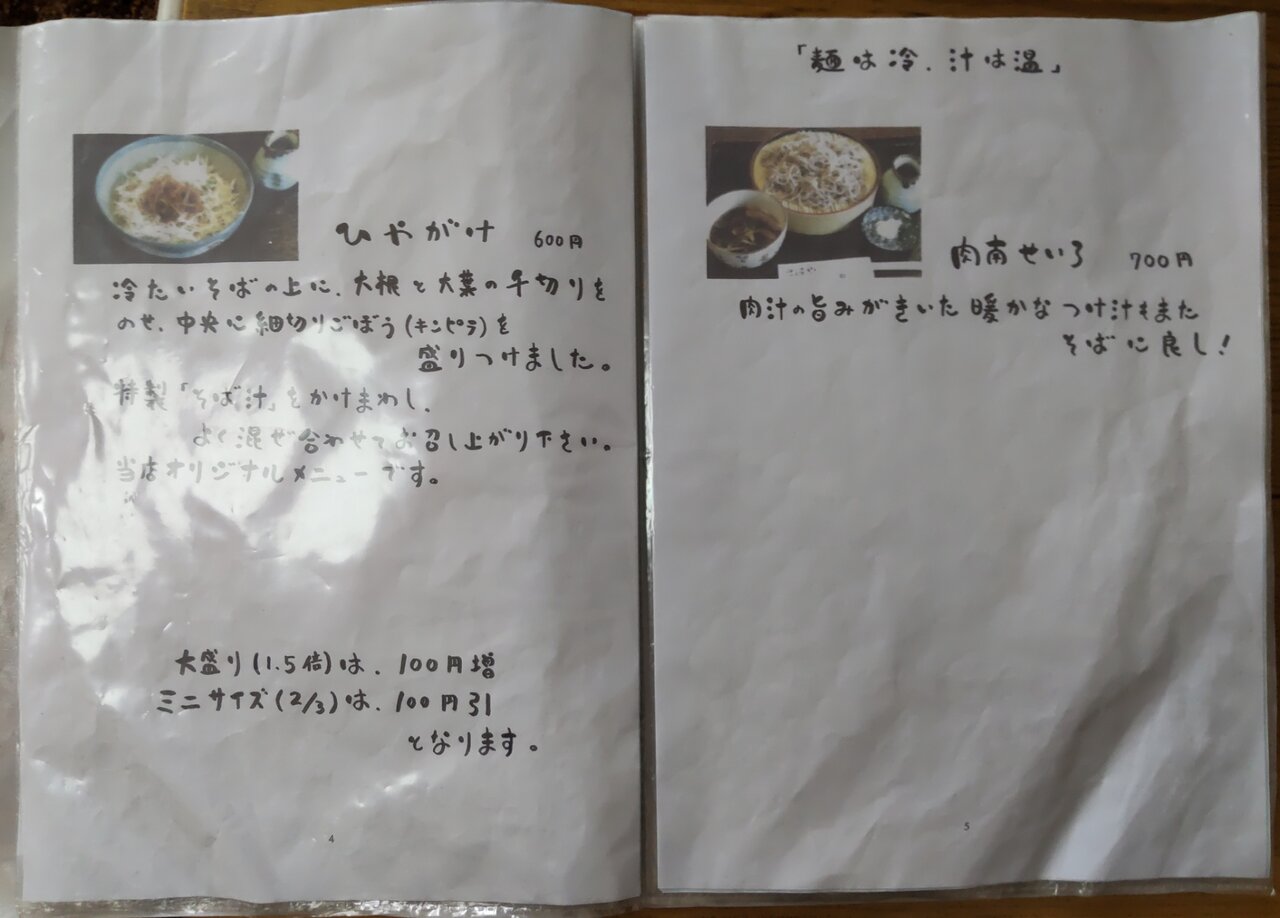 ひやがけ 600円
冷たいそばの上に、大根と大葉の千切りを
のせ、中央に細切りごぼう(キンピラ)を
盛りつけました。
特製「そば汁」をかけまわし、
よく混ぜ合わせてお召し上がり下さい。
当店オリジナルメニューです。
大盛り(1.5倍)は、100円増
ミニサイズ(2/3)は、100円引
となります。
4
「麺は冷、汁は温」
肉南せいろ 700円
肉汁の旨みがきいた暖かなつけ汁もまた
そばに良し!
5